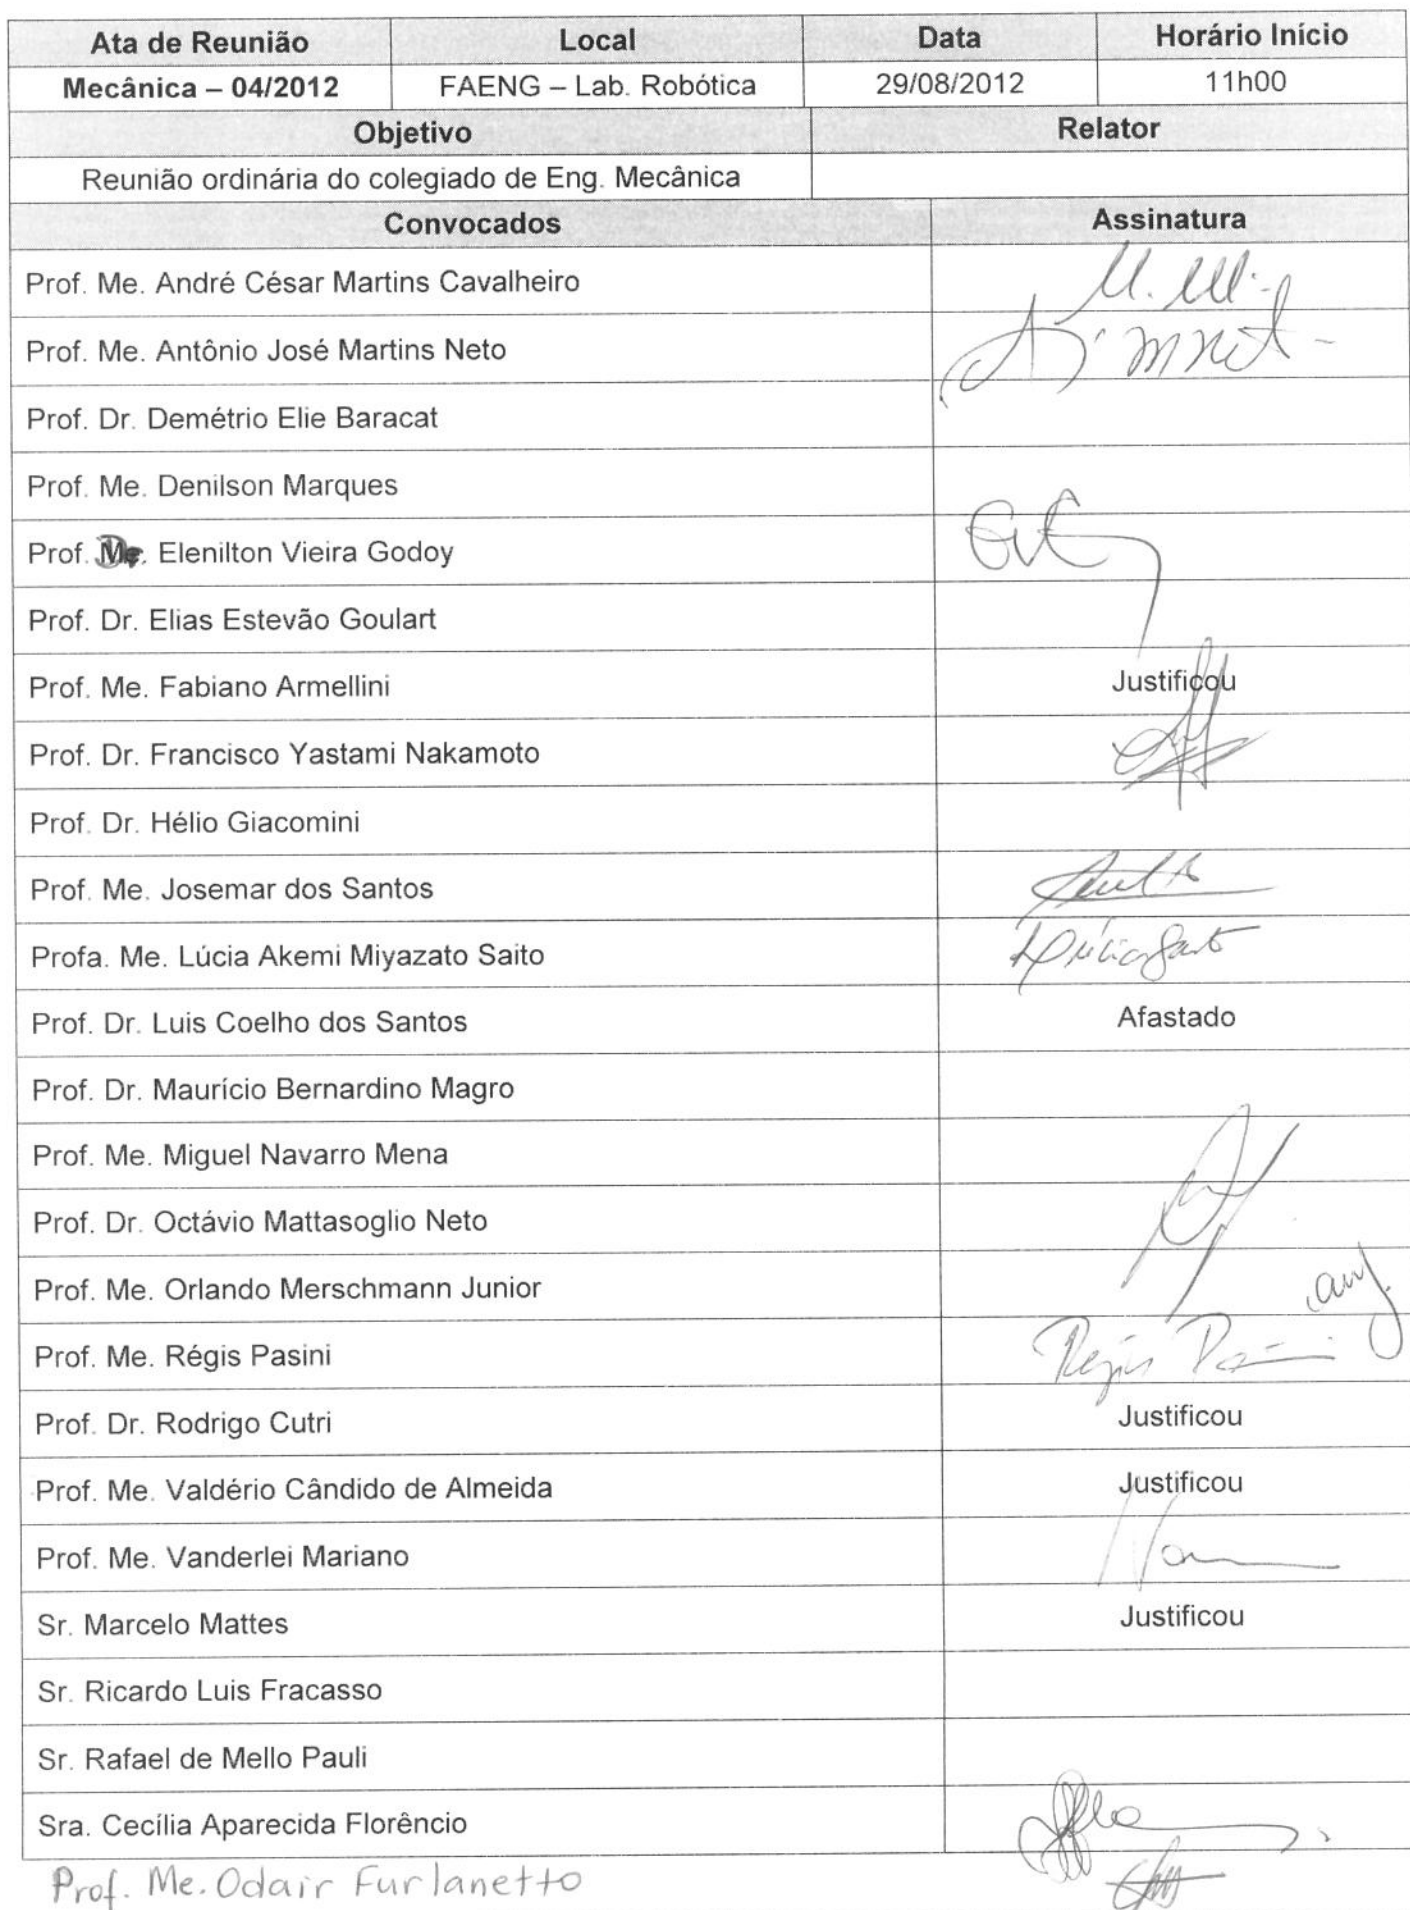 Ata de Reunião Local Data Horário Início
Mecânica – 04/2012 FAENG – Lab. Robótica 29/08/2012 11h00
Objetivo Relator
Reunião ordinária do colegiado de Eng. Mecânica
Convocados Assinatura
Prof. Me. André César Martins Cavalheiro
Prof. Me. Antônio José Martins Neto
Prof. Dr. Demétrio Elie Baracat
Prof. Me. Denilson Marques
Prof. Dr. Elenilton Vieira Godoy
Prof. Dr. Elias Estevão Goulart
Prof. Me. Fabiano Armellini Justificou
Prof. Dr. Francisco Yastami Nakamoto
Prof. Dr. Hélio Giacomini
Prof. Me. Josemar dos Santos
Profa. Me. Lúcia Akemi Miyazato Saito
Prof. Dr. Luis Coelho dos Santos Afastado
Prof. Dr. Maurício Bernardino Magro
Prof. Me. Miguel Navarro Mena
Prof. Dr. Octávio Mattasoglio Neto
Prof. Me. Orlando Merschmann Junior
Prof. Me. Régis Pasini Régis Pasini
Prof. Dr. Rodrigo Cutri Justificou
Prof. Me. Valdério Cândido de Almeida Justificou
Prof. Me. Vanderlei Mariano
Sr. Marcelo Mattes Justificou
Sr. Ricardo Luis Fracasso
Sr. Rafael de Mello Pauli
Sra. Cecília Aparecida Florêncio
Prof. Me. Odair Furlanetto